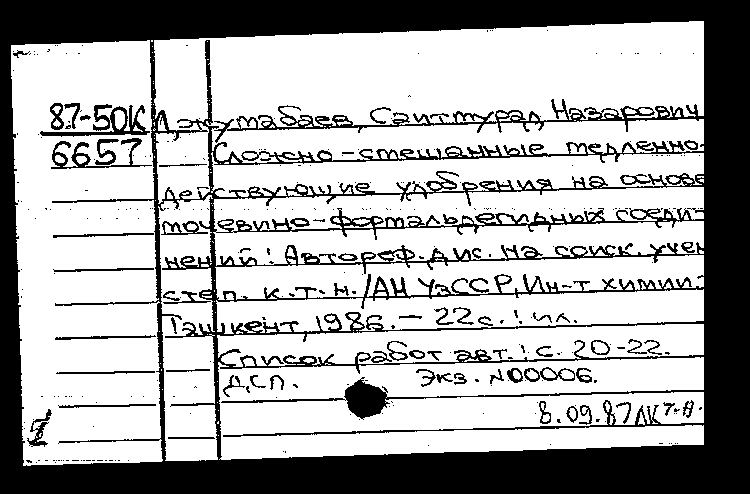 87-50К Джумабаев, Саитмурад Назарович
6657 Сложно-смешанные медленно-
действующие удобрения на основе
мочевино-формальдегидных соеди-
нений: Автореф. дис. на соиск. учен
степ. к.т.н. / АН УзССР, Ин-т химии.-
Ташкент, 1986. - 22с.: ил.
Список работ авт.: с. 20-22.
ДСП. Экз. №00006.
8.09.87